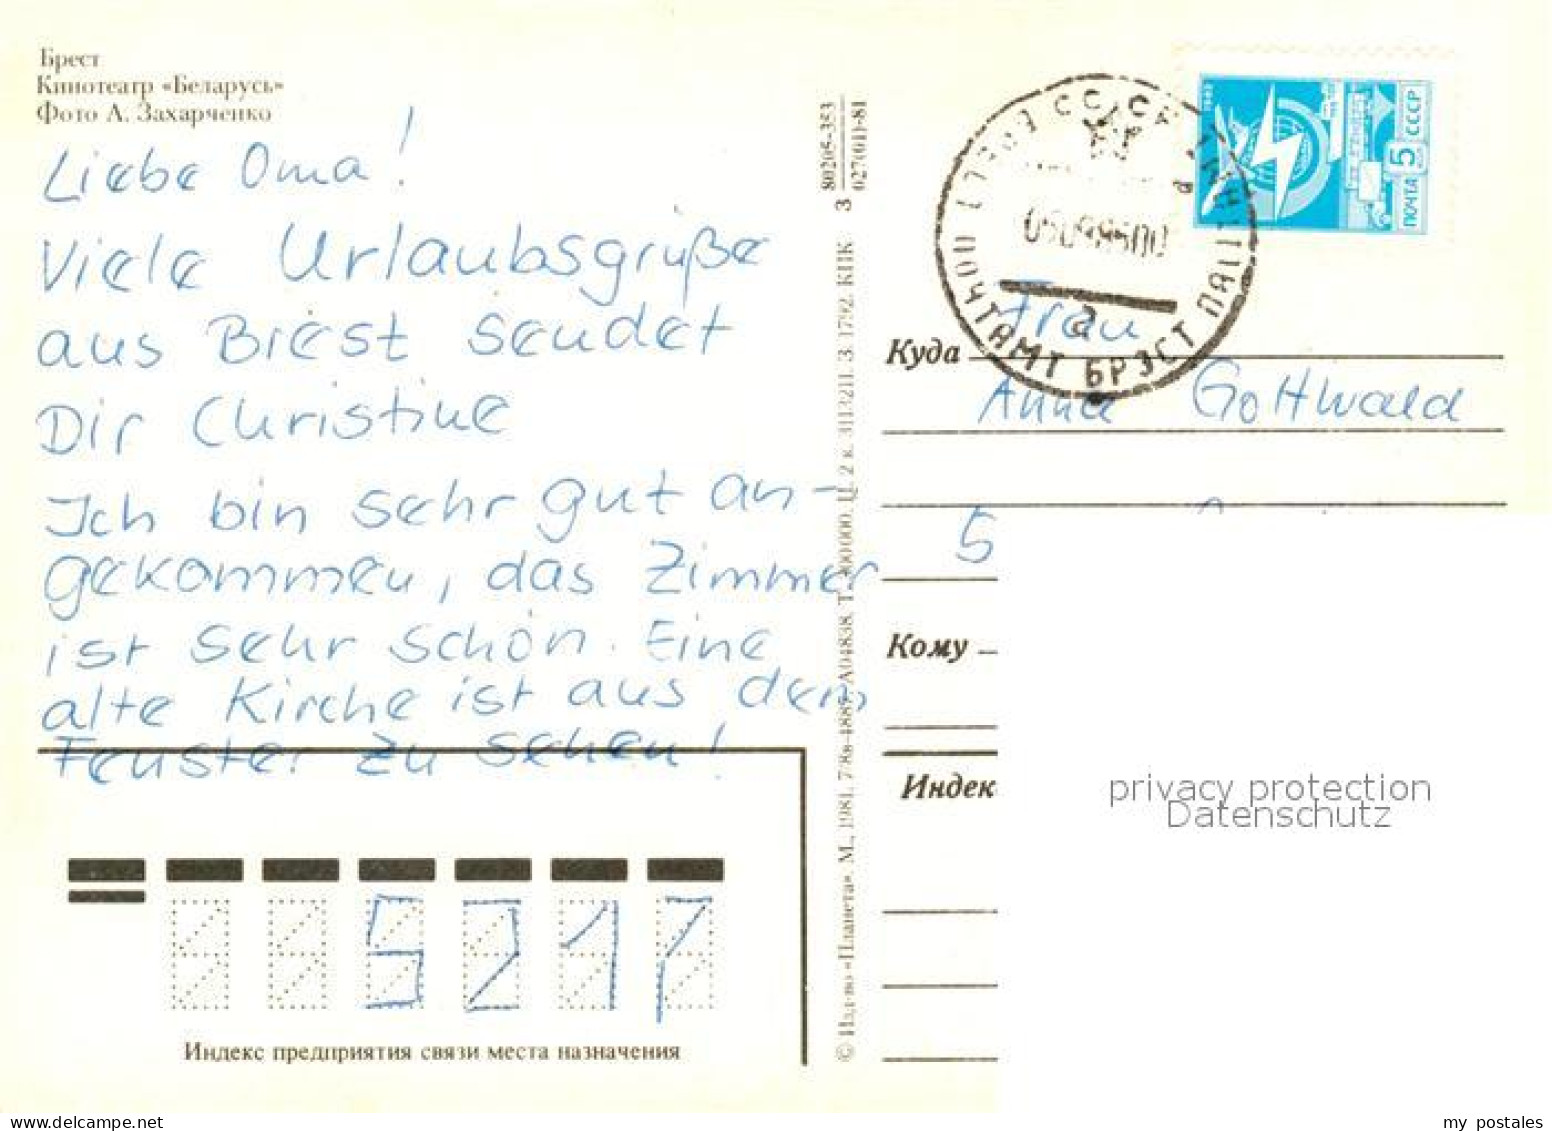 Брест
Кинотеатр «Беларусь»
Фото А. Захарченко
Liebe Oma!
Viele Urlaubsgrüße
aus Brest sendet
Dir Christine
Ich bin sehr gut an-
gekommen, das Zimmer
ist sehr schön. Eine
alte Kirche ist aus dem
Fenster zu sehen!
5217
Индекс предприятия связи места назначения
80205-353
027(01)-81
3
© Изд-во «Планета». М., 1981. А04838. Т. 300 000. Ц. 2 к. З. 1792. КПК
ПОЧТА 5 СССР
1982
СССР
ПОЧТАМТ БРЭСТ
Куда
Frau
Anna Gottwald
5
Кому
Индекс
privacy protection
Datenschutz
my-postcard.com
my postales